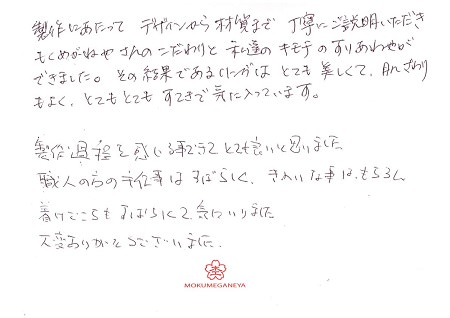 製作にあたって デザインから材質まで 丁寧にご説明いただき
もくめがねやさんのこだわりと 私達の キモチの すりあわせが
できました。その結果である は とても 美しくて、肌ざわり
もよく、とてもとても すてきで気に入っています。
製作過程を感じる事ができて とても良いと思いました
職人の 手仕事は すばらしく、きれいな事は、もちろん
着けごこちも すばらしくて 気にいりました
大変ありがとうございました。
MOKUMEGANEYA